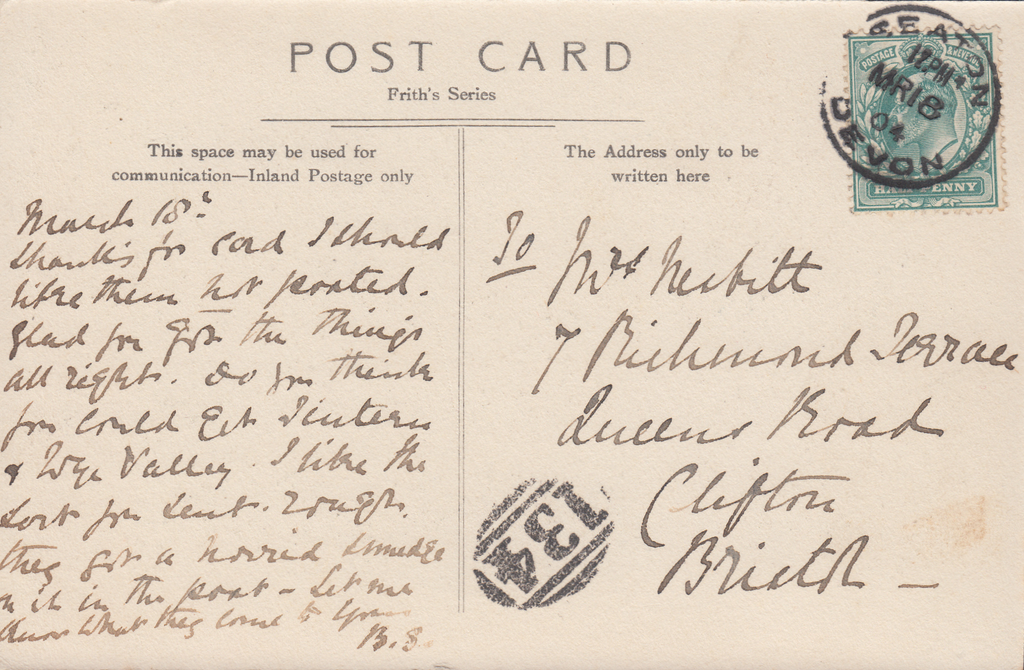 POST CARD
Frith's Series
This space may be used for
communication—Inland Postage only
The Address only to be
written here
POSTAGE & REVENUE
HALFPENNY
SEATON
12PM
MR 18
04
DEVON
March 18th
thanks for card I should
like them not posted.
Glad you got the things
all right. Do you think
you could get Tintern
& Wye Valley. I like the
sort you sent. rough.
they got a horrid smudge
on it in the post - Let me
know what they come to Yours
B.S.
To
Mrs Nesbitt
7 Richmond Terrace
Queens Road
Clifton
Bristol -
134